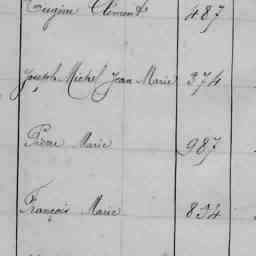 Eugène Clément 487
Joseph Michel Jean Marie 374
Pierre Marie 987
François Marie 834